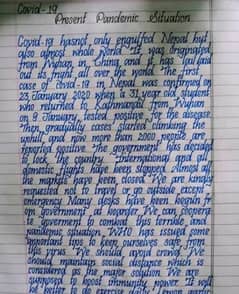 Covid-19
Present Pandemic Situation
Covid-19 hasnot only engulfed Nepal but
also almost whole world. It was originated
from Wuhan, in China and it has
out its fright all over the world. The first
case of Covid-19 in Nepal was confirmed on
23 January 2020 when a 31 year old student
who returned to Kathmandu from Wuhan
on 9 January, tested positive for the disease
then gradually cases started climbing the
uphill and now more than 2000 people are
reported positive. The government has decided
to lock the country. International and all
domestic flights have been stopped. Almost all
the markets have been closed. We are kindly
requested not to travel or go outside except
emergency. Many desks have been
government at boarder. We can cooperate
to combat this terrible and
pandemic situation. WHO has issued some
important tips to keep ourselves safe from
this virus. We should avoid crowd. We
should maintain social distance which is
considered as the major solution. We are
supposed to boost immunity power. It will
be better to do exercise daily.